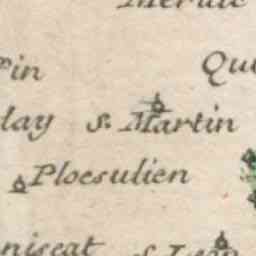 in Qui
lay S. Martin
Ploesulien
niscat S. Leon